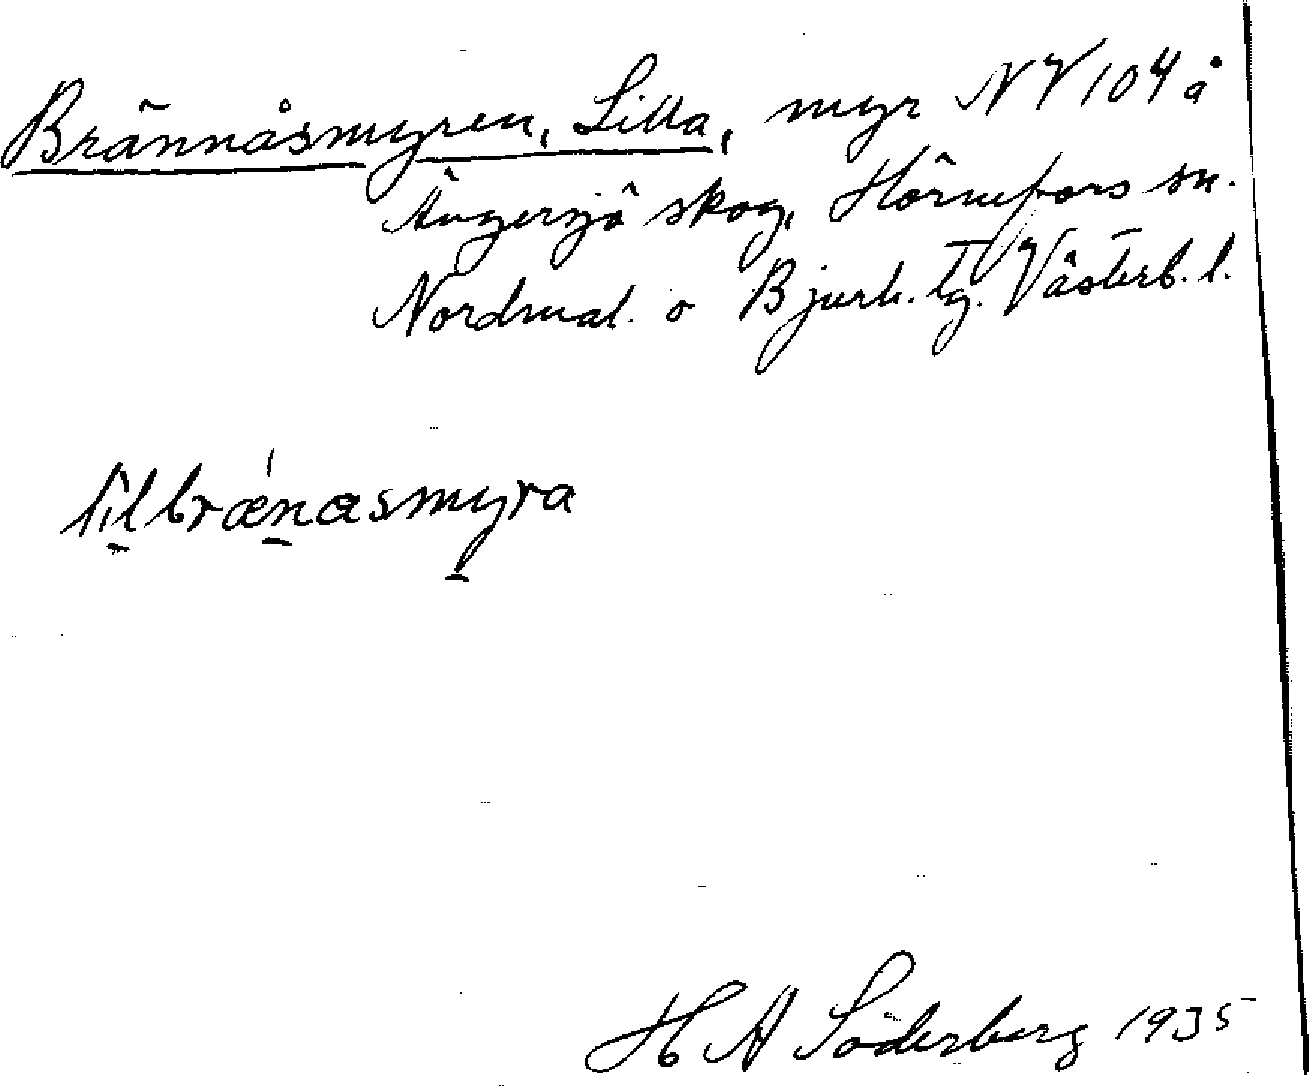 Brännåsmyren, Lilla, myr NV 104 å
Ängersjö skog, Hörnefors sn.
Nordmal. o Bjurh. tg. Västerb. l.
lilbrænasmyra
H A Söderberg 1935